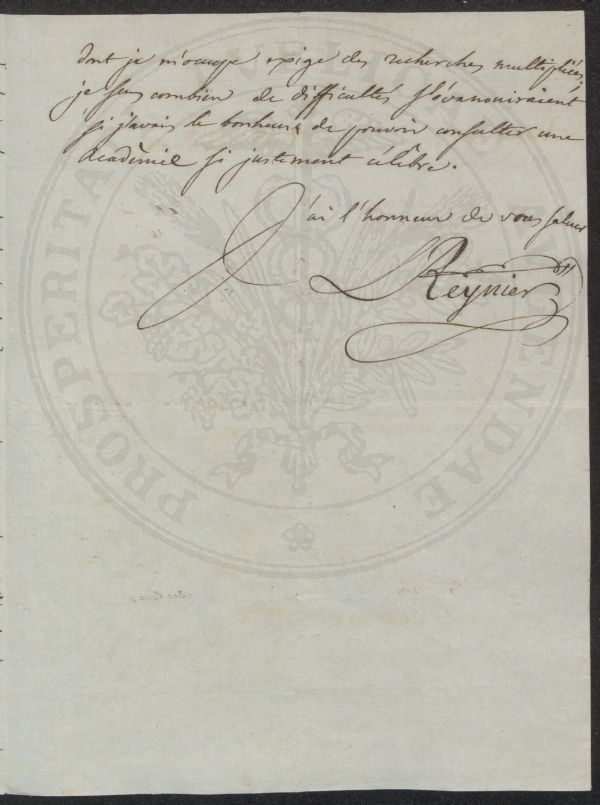 dont je m'occupe exige des recherches multipliées;
je sens combien de difficultés s'évanouiraient
si j'avais le bonheur de pouvoir consulter une
académie si justement célèbre.
J'ai l'honneur de vous saluer
L Reynier
PROSPERITATI PUBLICAE AUGENDAE